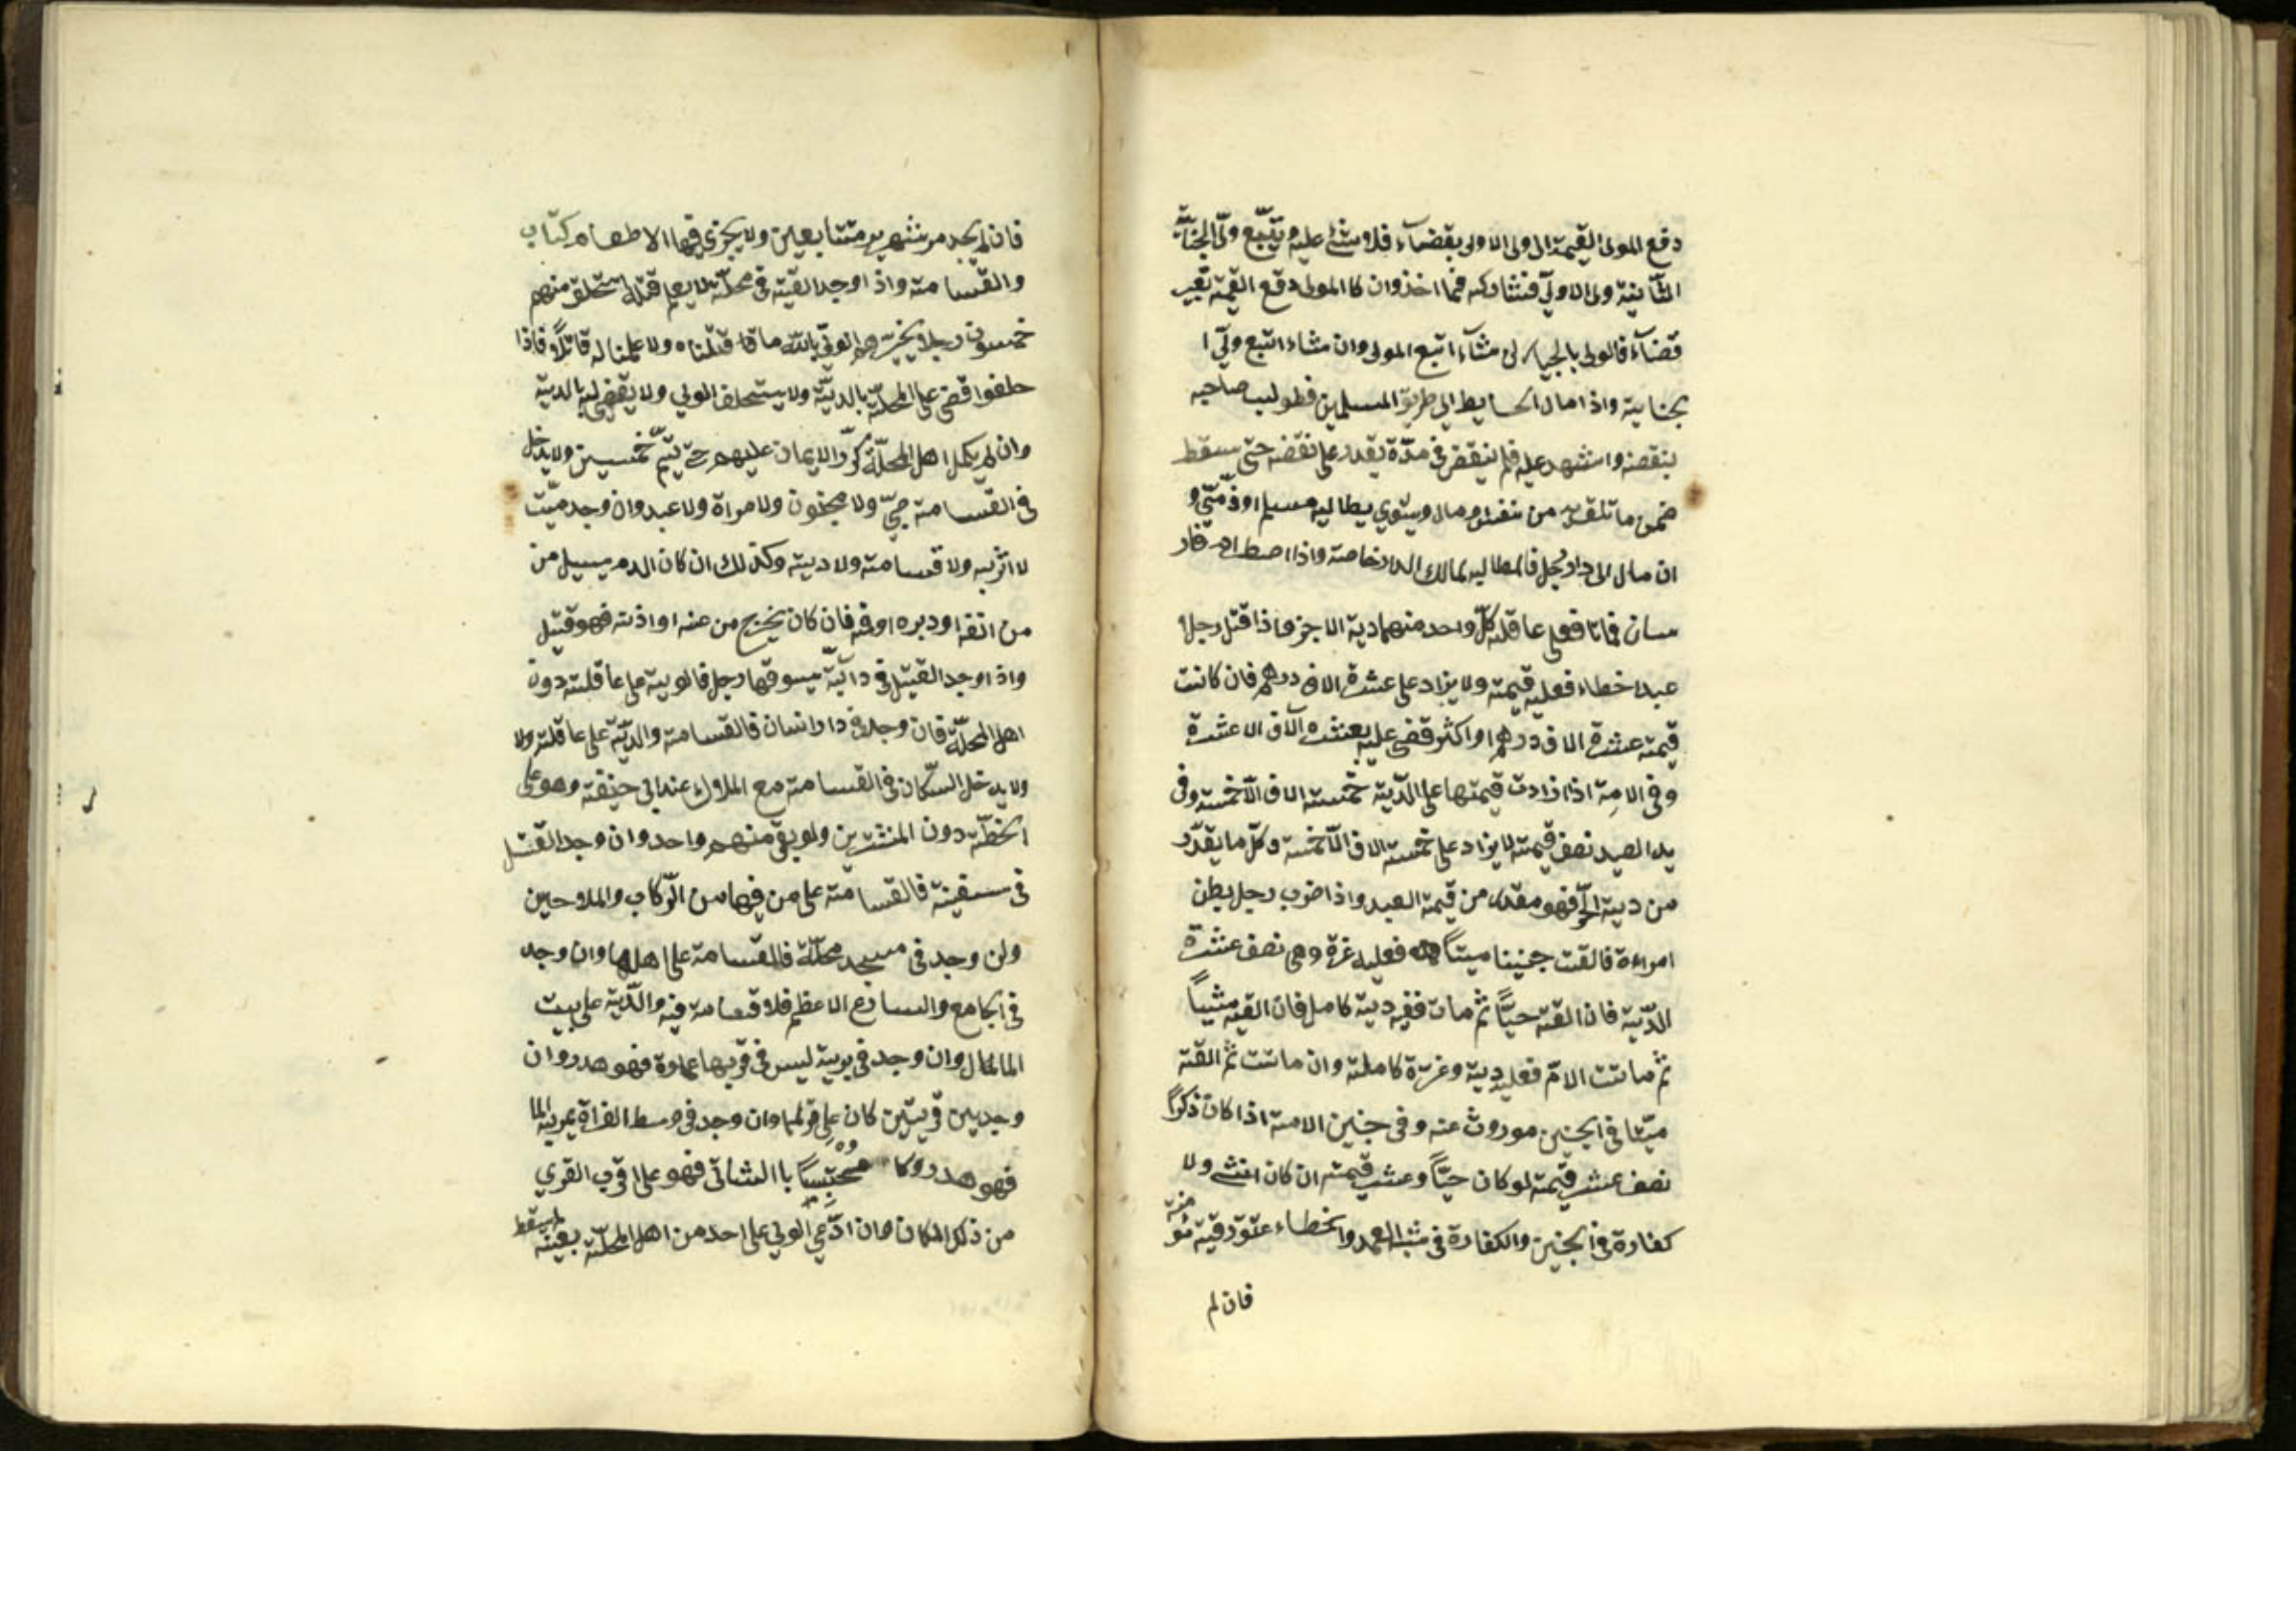 دفع المولى القيمة الى ولى الاولى بقضآء فلا شئ عليه ويتّبع ولىّ الجنآيّة
الثّانية ولى الاولىّ فشاركه فيما اخذ وان كا المولى دفع القيمة بغير
قضآء فالولى بالخيار ان شآء اتبع المولى وان شاء اتبع ولىّ ا
بجناية واذا مال الحايط الى طريق المسلمين فطولب صاحبه
بنقضه واشهد عليه فلم ينقض فى مدّة يقدر على نقضه حتى سقط
ضمن ما تلف به من نفس ومال ويستوي يطالبه مسلم او ذمّيّ و
ان مال الى دار رجل فالمطالبه لمالك الدار خاصة واذا اصطدم فار
سان فماتا فعلى عاقلة كلّ واحد منهما دية الاخر واذا قتل رجل
عبدا خطاء فعليه قيمته ولا يزاد على عشرة الاف درهم فان كانت
قيمته عشرة الاف درهم او اكثر قضى عليه بعشرة آلاف الا عشرة
وفى الامة اذا زادت قيمتها على الدّية خمسة الاف الّا خمسة وفى
يد العبد نصف قيمته لا يزاد على خمسة الاف الّا خمسة وكلّ ما يقدّر
من دية الحرّ فهو مقدر من قيمة العبد واذا ضرب رجل بطن
امراءة فالقت جنينا ميتاً فعليه غرة وهى نصف عشرة
الدّية فان القته حيّاً ثم مات ففيه دية كامل فان القته ميتاً
ثم ماتت الامّ فعليه دية وغرّة كاملة وان ماتت ثم القته
ميّتا فى الجنين موروث عنه وفى جنين الامة اذا كان ذكراً
نصف عشر قيمته لو كان حيّاً وعشر قيمته ان كان انثى ولا
كفارة فى الجنين والكفارة فى شبه العمد والخطاء عتق رقبة مؤ
منة
فان لم
فان لم يجد مر شهرين متتابعين ولا يجزي فيها الاطعام كتاب
والقسامة واذا وجد القتيل فى محلّة لا يعلم قتله استحلف منهم
خمسون رجلا يخيّرهم الولىّ بالله ما قتلناه ولا علمنا له قاتلاً فاذا
حلفوا قضى على المحلّة بالديّة ولا يستحلف الولي ولا يقضى له بالدية
وان لم يكمل اهل المحلّة كرّر الايمان عليهم حتى يتمّ خمسين ولا يدخل
فى القسامة صبىّ ولا مجنون ولا مراة ولا عبد وان وجد ميّت
لا اثر به ولا قسامة ولا دية وكذلك ان كان الدم يسيل من
من انفه او دبره او فمه فان كان يخرج من عينه او اذنه فهو قتيل
واذا وجد القتيل فى دآبّة يسوقها رجل فالدية على عاقلته دون
اهل المحلّة فان وجد فى دار انسان فالقسامة والديّة على عاقلته ولا
ولا يدخل السكّان فى القسامة مع الملاك عند ابى حنيفة وهو على
الخطّة دون المشترين ولو بقى منهم واحد وان وجد القتيل
فى سفينة فالقسامة على من فيها من الرّكاب والملاحين
وان وجد فى مسجد محلّة فالقسامة على اهلها وان وجد
فى الجامع والسارع الاعظم فلا قسامة فيه والدّية على بيت
الما المال وان وجد فى برية ليس فى قربها عمارة فهو هدر وان
وجد بين قريتين كان على قربهما وان وجد فى وسط الفراة يمر به الما
فهو هدر وكا محتبساً با الشاتى فهو على اقرب القري
من ذلك المكان وان ادّعي الولي على احد من اهل المحلّة بعينه
لم يسقط